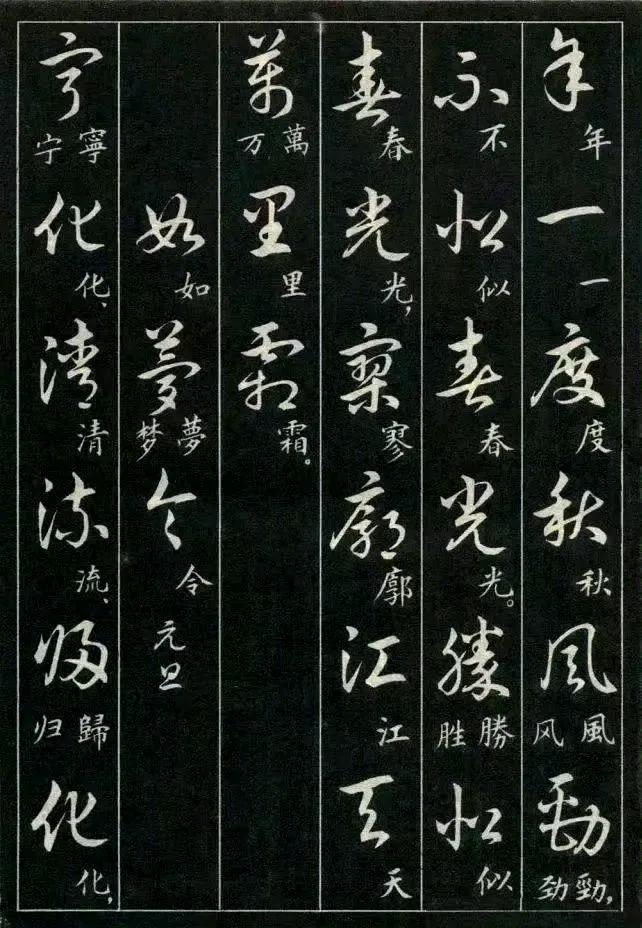 年一度秋風勁
年一度秋風风勁,劲
不似春光勝似
不似春光。勝胜似
春光寥廓江天
春光,寥廓江天
萬里霜
萬万里霜。
如夢令
如夢梦令
元旦
寧化清流歸化
寧宁化、清流、歸归化,